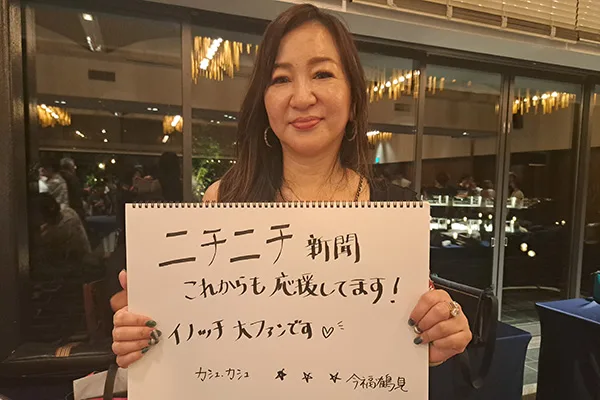 ニチニチ 新聞
これからも 応援してます!
イノッチ 大ファンです♡
カシェ・カシェ ★ ★ ★ 今福鶴見